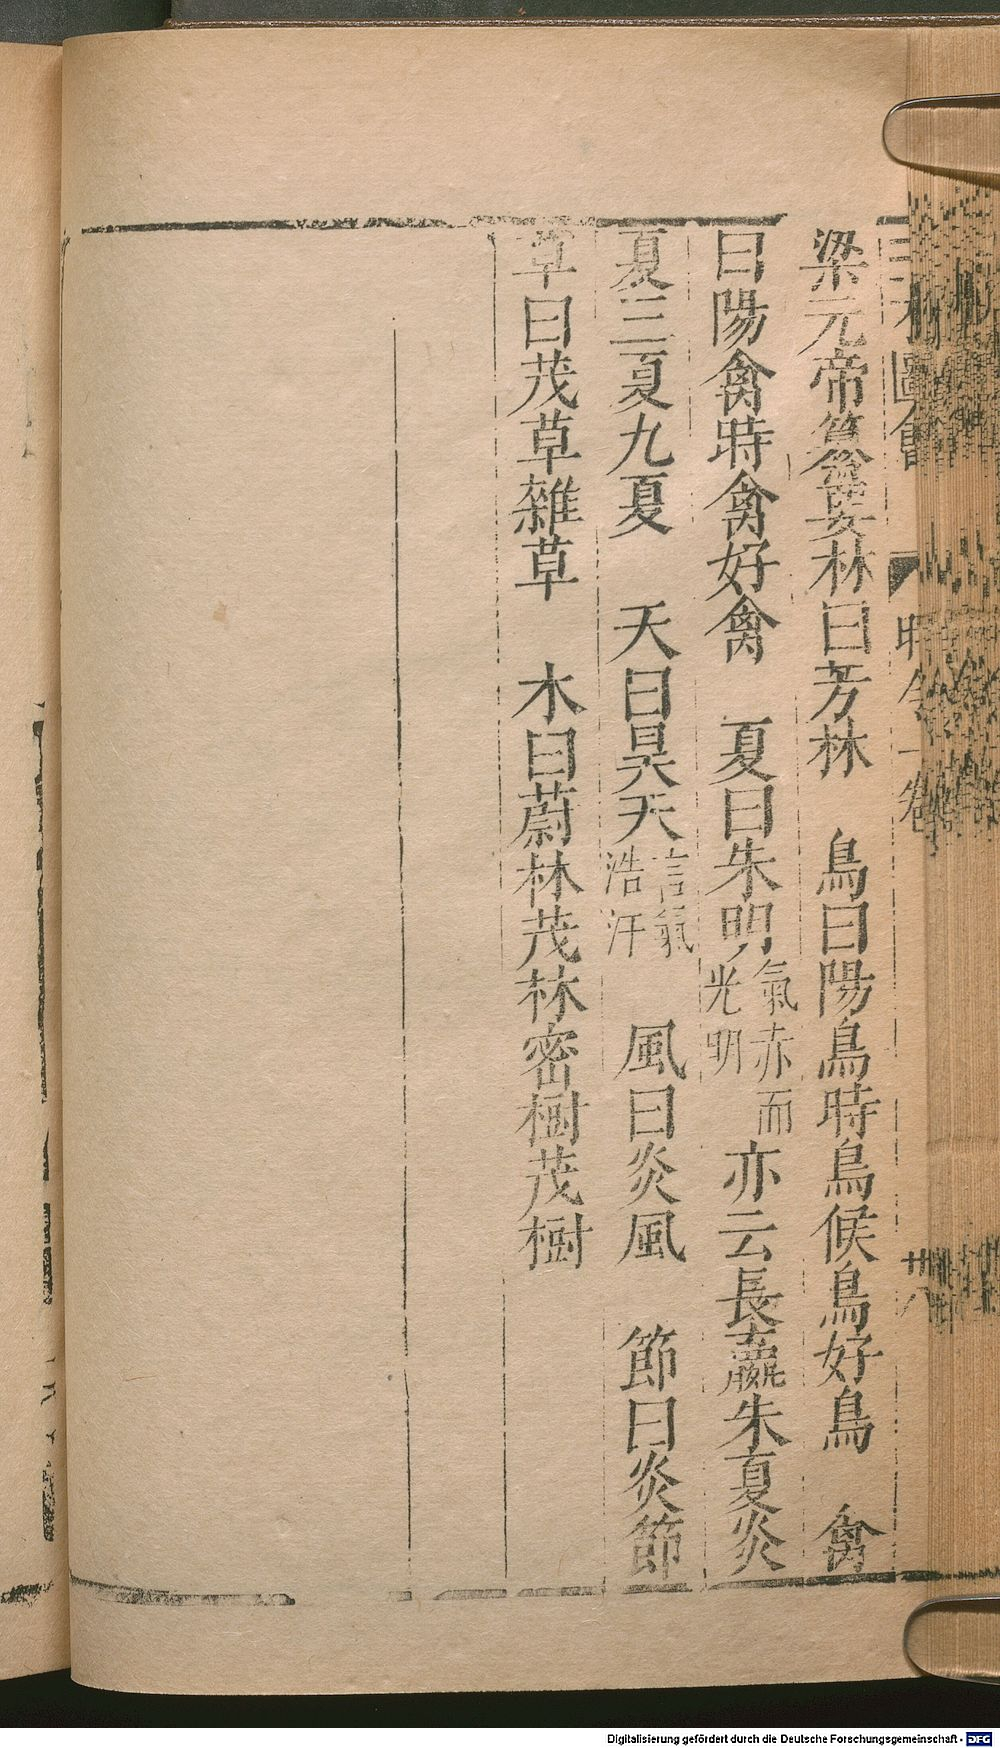 梁元帝纂要林曰芳林　鳥曰陽鳥時鳥候鳥好鳥　禽
曰陽禽時禽好禽　夏曰朱明氣赤而光明亦云長嬴朱夏炎
夏三夏九夏　天曰昊天言氣浩汗　風曰炎風　節曰炎節
草曰茂草雜草　木曰蔚林茂林密樹茂樹
圖會
時令一卷
廿八
Digitalisierung gefördert durch die Deutsche Forschungsgemeinschaft - DFG